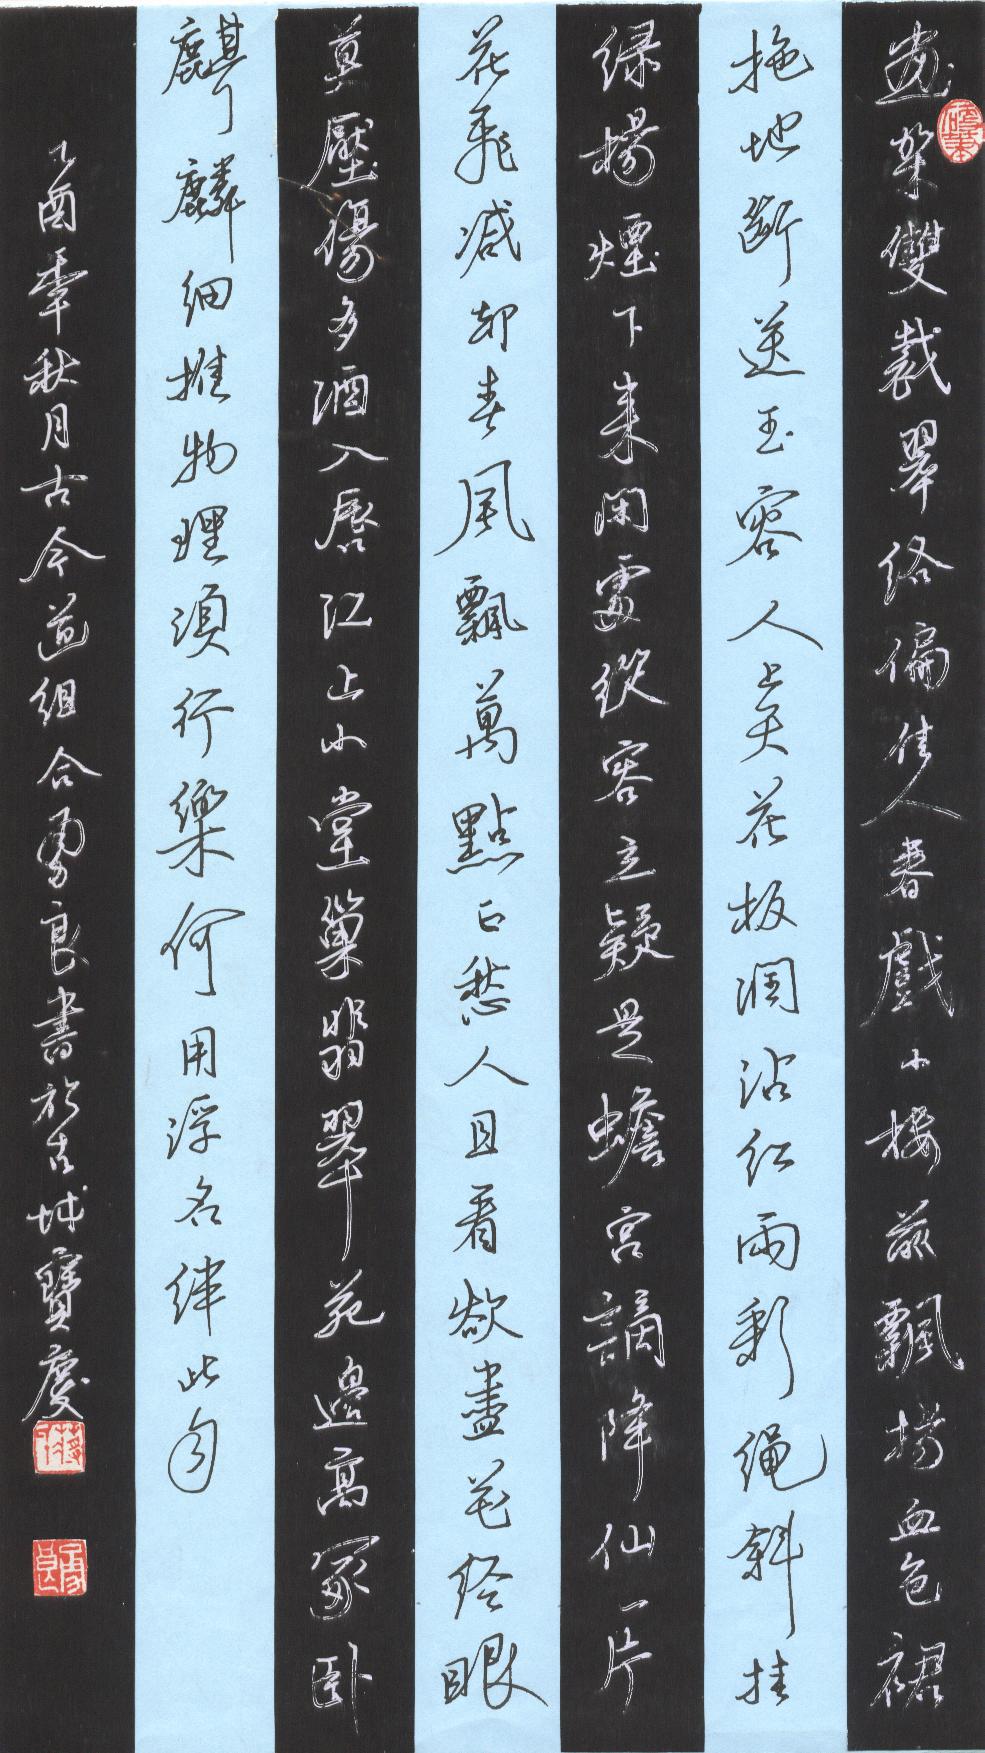 畫架雙裁翠络偏佳人春戲小楼前飄揚血色裙
拖地断送玉容人上天花板潤沾红雨彩绳斜挂
绿楊煙下来閑處從容立疑是蟾宮謫降仙一片
花飛減却春風飄萬點正愁人且看欲盡花经眼
莫壓傷多酒入唇江上小堂巢翡翠苑邊高冢卧
麒麟细推物理須行樂何用浮名绊此身
乙酉年秋月古今道组合勇良書於古城寶慶